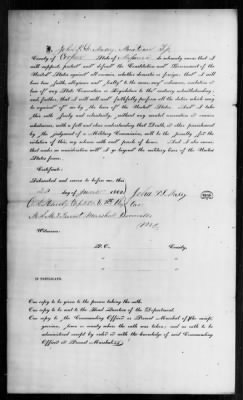 I, John P. S.
County of Cooper State of Missouri do solemnly swear that I
will support, protect and defend the Constitution and Government of the
United States against all enemies, whether domestic or foreign; that I will
bear true faith, allegiance and loyalty to the same, any ordinance, resolution or
law of any State Convention or Legislature to the contrary notwithstanding;
and further, that I will well and faithfully perform all the duties which may
be required of me by the laws of the United States. And I take
this oath freely and voluntarily, without any mental reservation or evasion
whatsoever, with a full and clear understanding that Death, or other punishment
by the judgment of a Military Commission, will be the penalty for the
violation of this my solemn oath and parole of honor. And I also swear
that under no consideration will I go beyond the military lines of the United
States forces.
Certificate:
Subscribed and sworn to before me this
day of June 1862 John P. S.
Marshal Boonville
Mo
Witnesses:
P. O. County,
IN DUPLICATE.
One copy to be given to the person taking the oath.
One copy to be sent to the Head Quarters of the Department.
One copy to the Commanding Officer or Provost Marshal of the
garrison, town or county where the oath was taken; and no oath to be
administered except by order or with the knowledge of said Commanding
Officer or Provost Marshal.